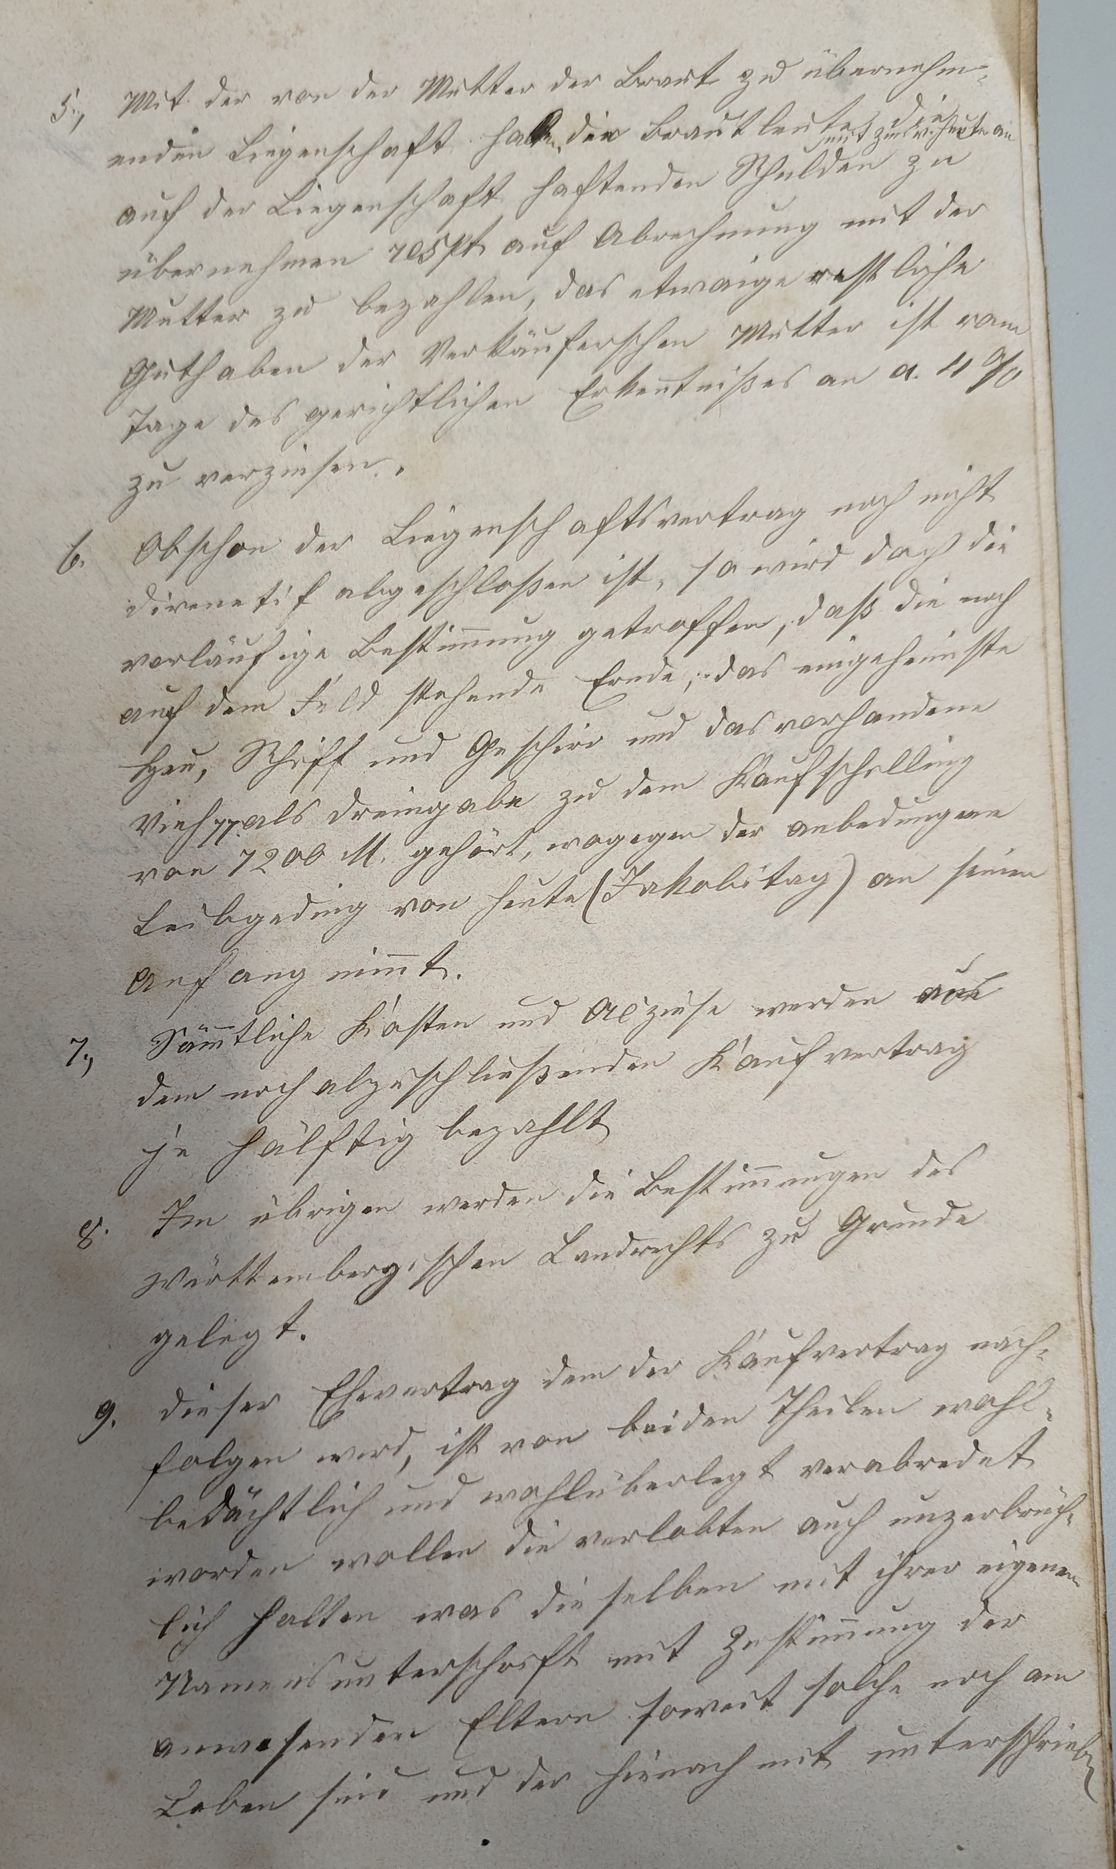 5., Mit der von der Mutter der Braut zu übernehm-
enden Liegenschaft haben die Brautleute die
mit Zins v. heute an
auf der Liegenschaft haftenden Schulden zu
übernehmen resp. auf Abrechnung mit der
Mutter zu bezahlen, das etwaige restliche
Guthaben der Verkäuferschen Mutter ist vom
Tage des gerichtlichen Erkentnißes an a. 4 %
zu verzinsen.
6. Obschon der Liegenschaftsvertrag noch nicht
abgeschloßen ist, so wird doch die
vorläufige Bestim̅ung getroffen, daß die noch
auf dem Feld stehende Ernde, das eingeheimste
Heu, Schiff und Geschirr und das vorhandene
Vieh pp. als Dreingabe zu dem Kaufschilling
von 7200 M. gehört, wogegen der anbedungene
Leibgeding von heute (Jakobitag) an seinen
Anfang nim̅t.
7., Säm̅tliche Kosten und Accise werden aus
dem noch abzuschließenden Kaufvertrag
je hälftig bezahlt
8. Im übrigen werden die Bestim̅ungen des
Württembergischen Landrechts zu Grunde
gelegt.
9. Dieser Ehevertrag dem der Kaufvertrag nach-
folgen wird, ist von beiden Theilen wohl-
bedächtlich und wohlüberlegt verabredet
worden wollen die Verlobten auch unzerbrüch-
lich halten was dieselben mit ihrer eigenen
Namensunterschrift mit Zustim̅ung der
anwesenden Eltern soweit solche noch am
Leben sind und der hienach mit unterschrieb